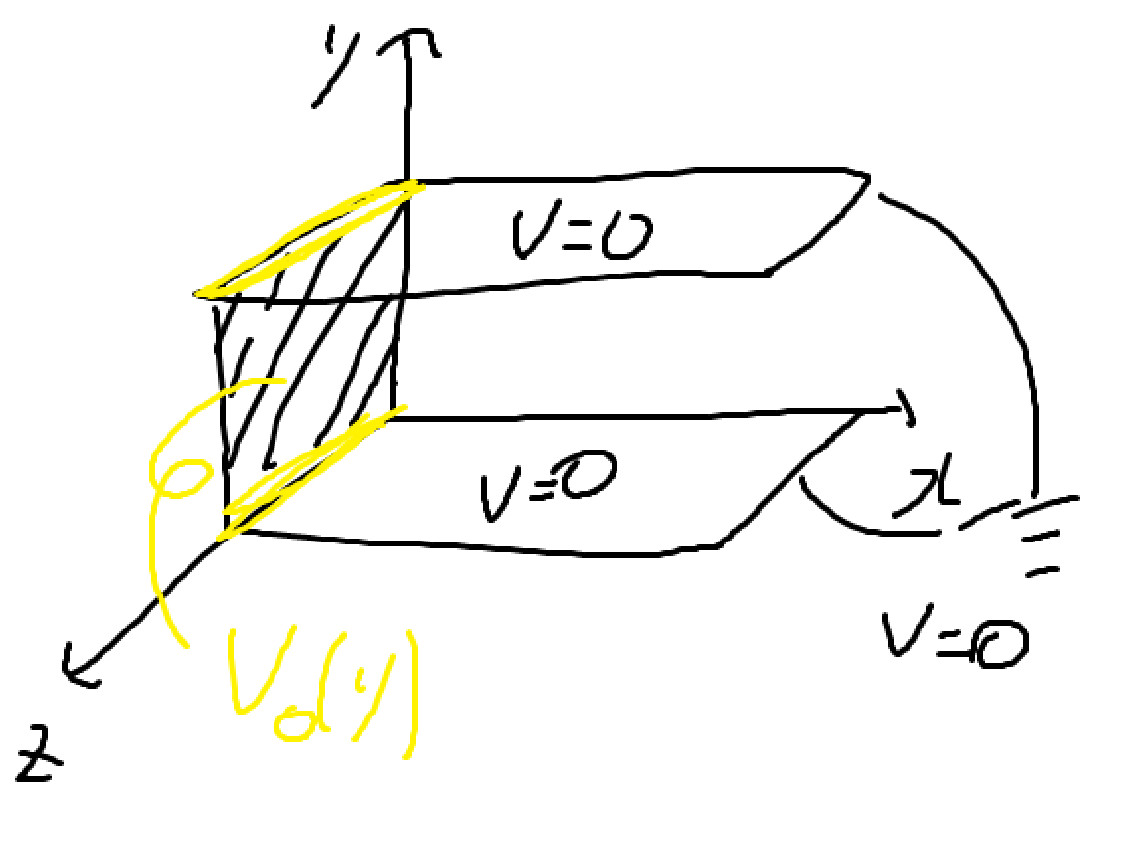 y
V=0
V=0
x
V=0
V₀(y)
z